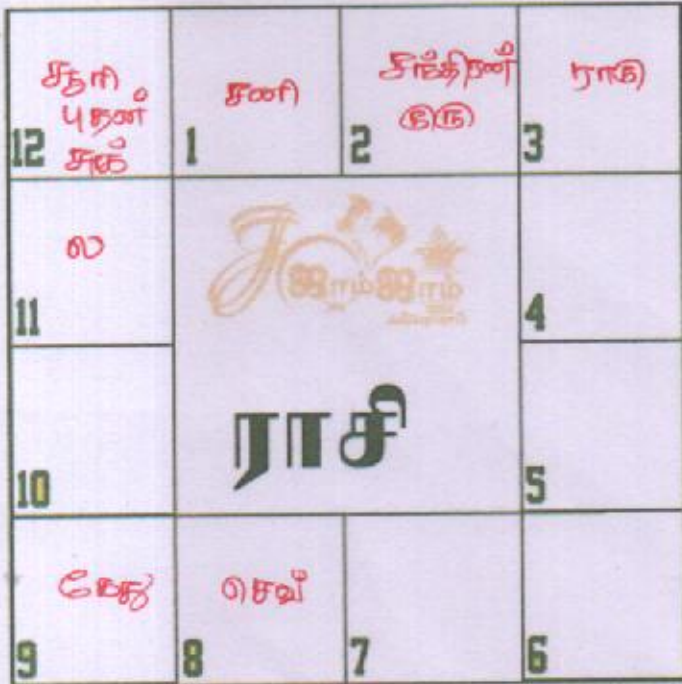 சூரி
புதன்
சுக்
12
சனி
1
சந்திரன்
குரு
2
ராகு
3
ல
11
ஜாம்ஜாம்
4
ராசி
10
5
கேது
9
செவ்
8
7
6